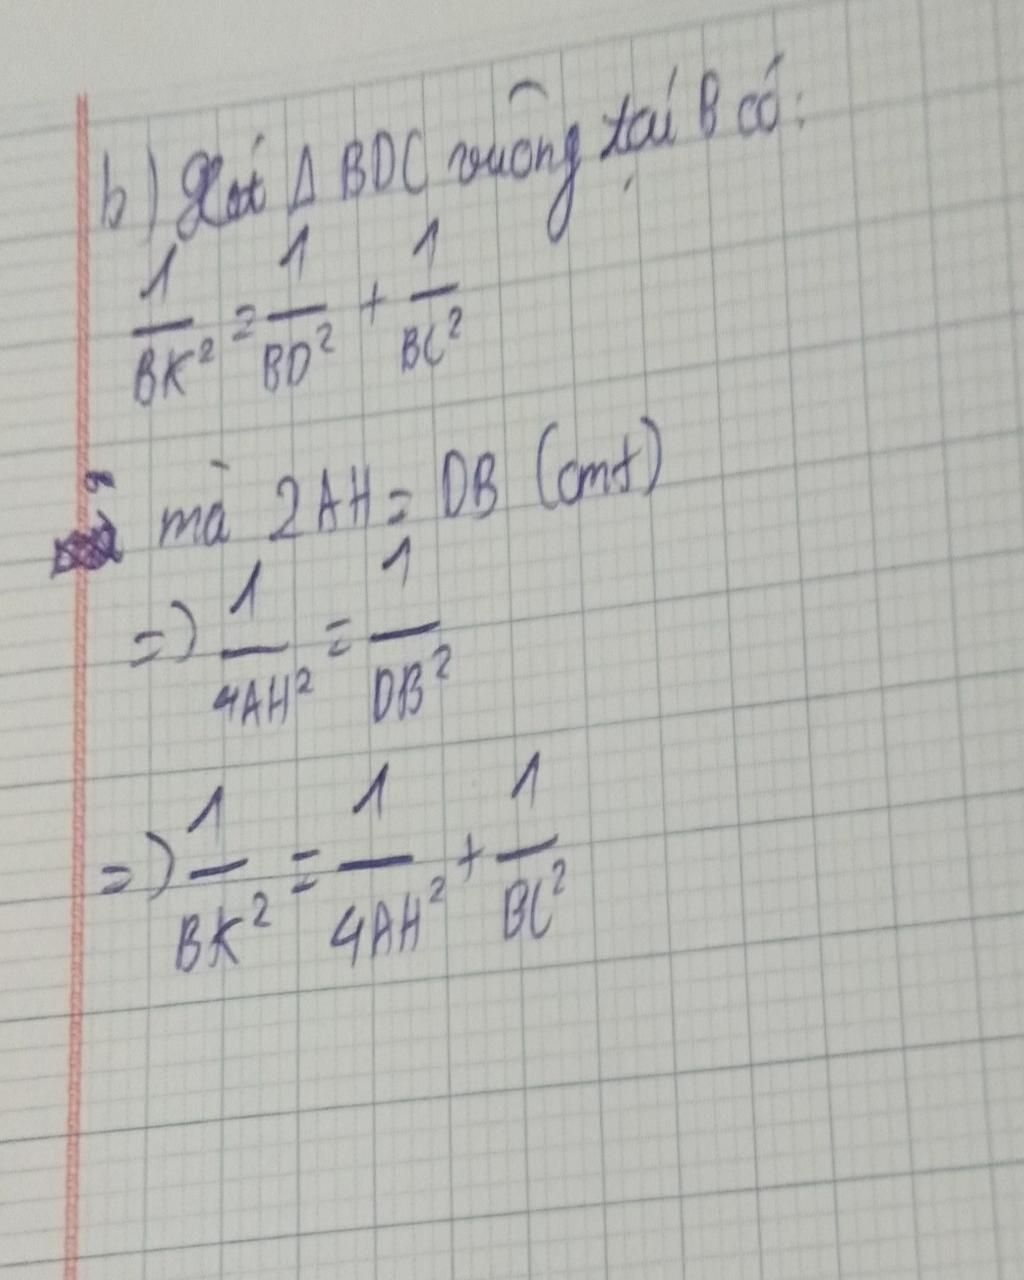 b) Xét Δ BDC vuông tại B có:
1/BK² = 1/BD² + 1/BC²
mà 2AH = DB (cmt)
=> 1/4AH² = 1/DB²
=> 1/BK² = 1/4AH² + 1/BC²